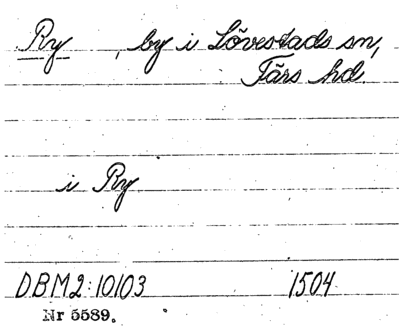 Ry , by i Lövestads sn,
Färs hd.
i Ry
DBM2:10103 1504
Nr 5589.